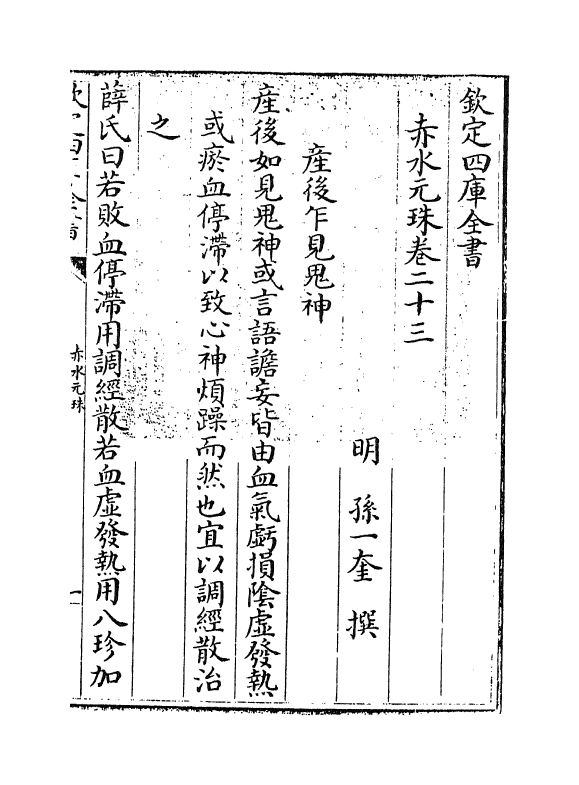 欽定四庫全書
赤水元珠卷二十三
明 孫一奎 撰
産後乍見鬼神
産後如見鬼神或言語譫妄皆由血氣虧損陰虛發熱
或瘀血停滯以致心神煩躁而然也宜以調經散治
之
薛氏曰若敗血停滯用調經散若血虛發熱用八珍加
赤水元珠
一